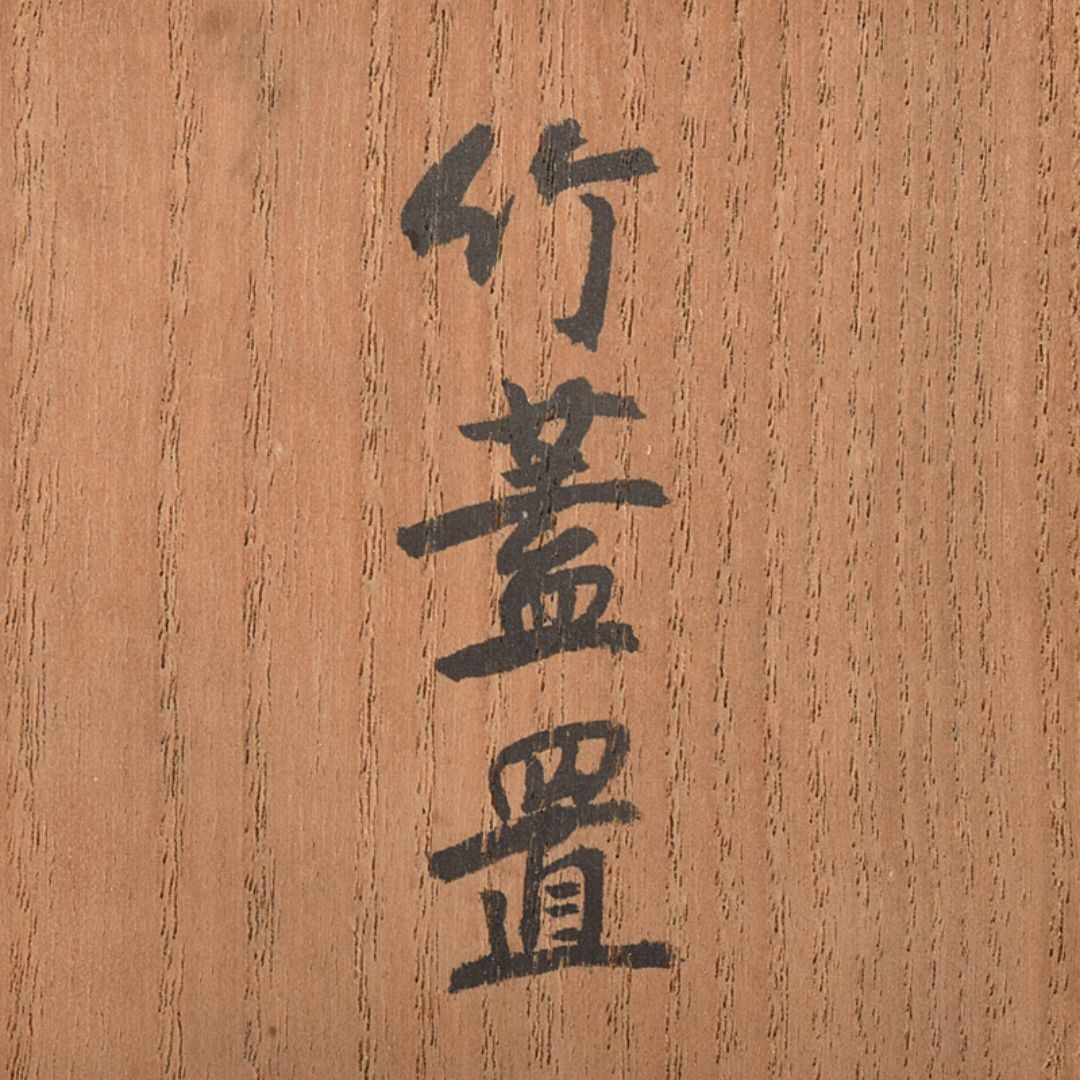 竹蓋置